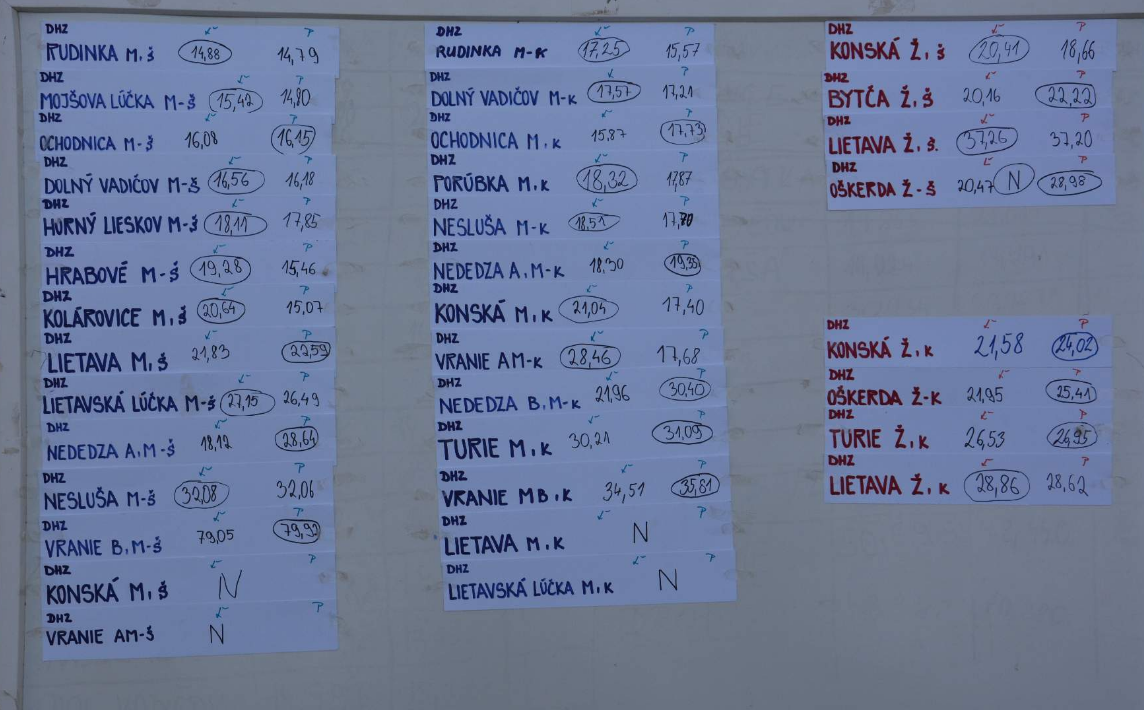 DHZ
RUDINKA M, Š 14,88 14,79
DHZ
MOJŠOVA LÚČKA M-Š 15,42 14,80
DHZ
OCHODNICA M-Š 16,08 16,15
DHZ
DOLNÝ VADIČOV M-Š 16,56 16,18
DHZ
HORNÝ LIESKOV M-Š 18,11 17,85
DHZ
HRABOVÉ M-Š 19,28 15,46
DHZ
KOLÁROVICE M, Š 20,64 15,07
DHZ
LIETAVA M, Š 21,83 22,59
DHZ
LIETAVSKÁ LÚČKA M-Š 27,15 26,49
DHZ
NEDEDZA A, M-Š 18,12 28,64
DHZ
NESLUŠA M-Š 32,08 32,06
DHZ
VRANIE B, M-Š 79,05 79,92
DHZ
KONSKÁ M, Š N
DHZ
VRANIE AM-Š N
DHZ
RUDINKA M-K 17,25 15,57
DHZ
DOLNÝ VADIČOV M-K 17,57 17,21
DHZ
OCHODNICA M, K 15,87 17,73
DHZ
PORÚBKA M, K 18,32 17,87
DHZ
NESLUŠA M-K 18,51
DHZ
NEDEDZA A, M-K 18,30 19,35
DHZ
KONSKÁ M, K 21,04 17,40
DHZ
VRANIE AM-K 28,46 17,68
DHZ
NEDEDZA B, M-K 21,96 30,40
DHZ
TURIE M, K 30,21 31,09
DHZ
VRANIE MB, K 34,51 35,81
DHZ
LIETAVA M, K N
DHZ
LIETAVSKÁ LÚČKA M, K N
DHZ
KONSKÁ Ž, Š 20,41 18,66
DHZ
BYTČA Ž, Š 20,16 22,22
DHZ
LIETAVA Ž, Š. 37,26 37,20
DHZ
OŠKERDA Ž-Š 20,47 N 28,98
DHZ
KONSKÁ Ž, K 21,58 24,02
DHZ
OŠKERDA Ž-K 21,95 25,41
DHZ
TURIE Ž, K 26,53 26,95
DHZ
LIETAVA Ž, K 28,86 28,62